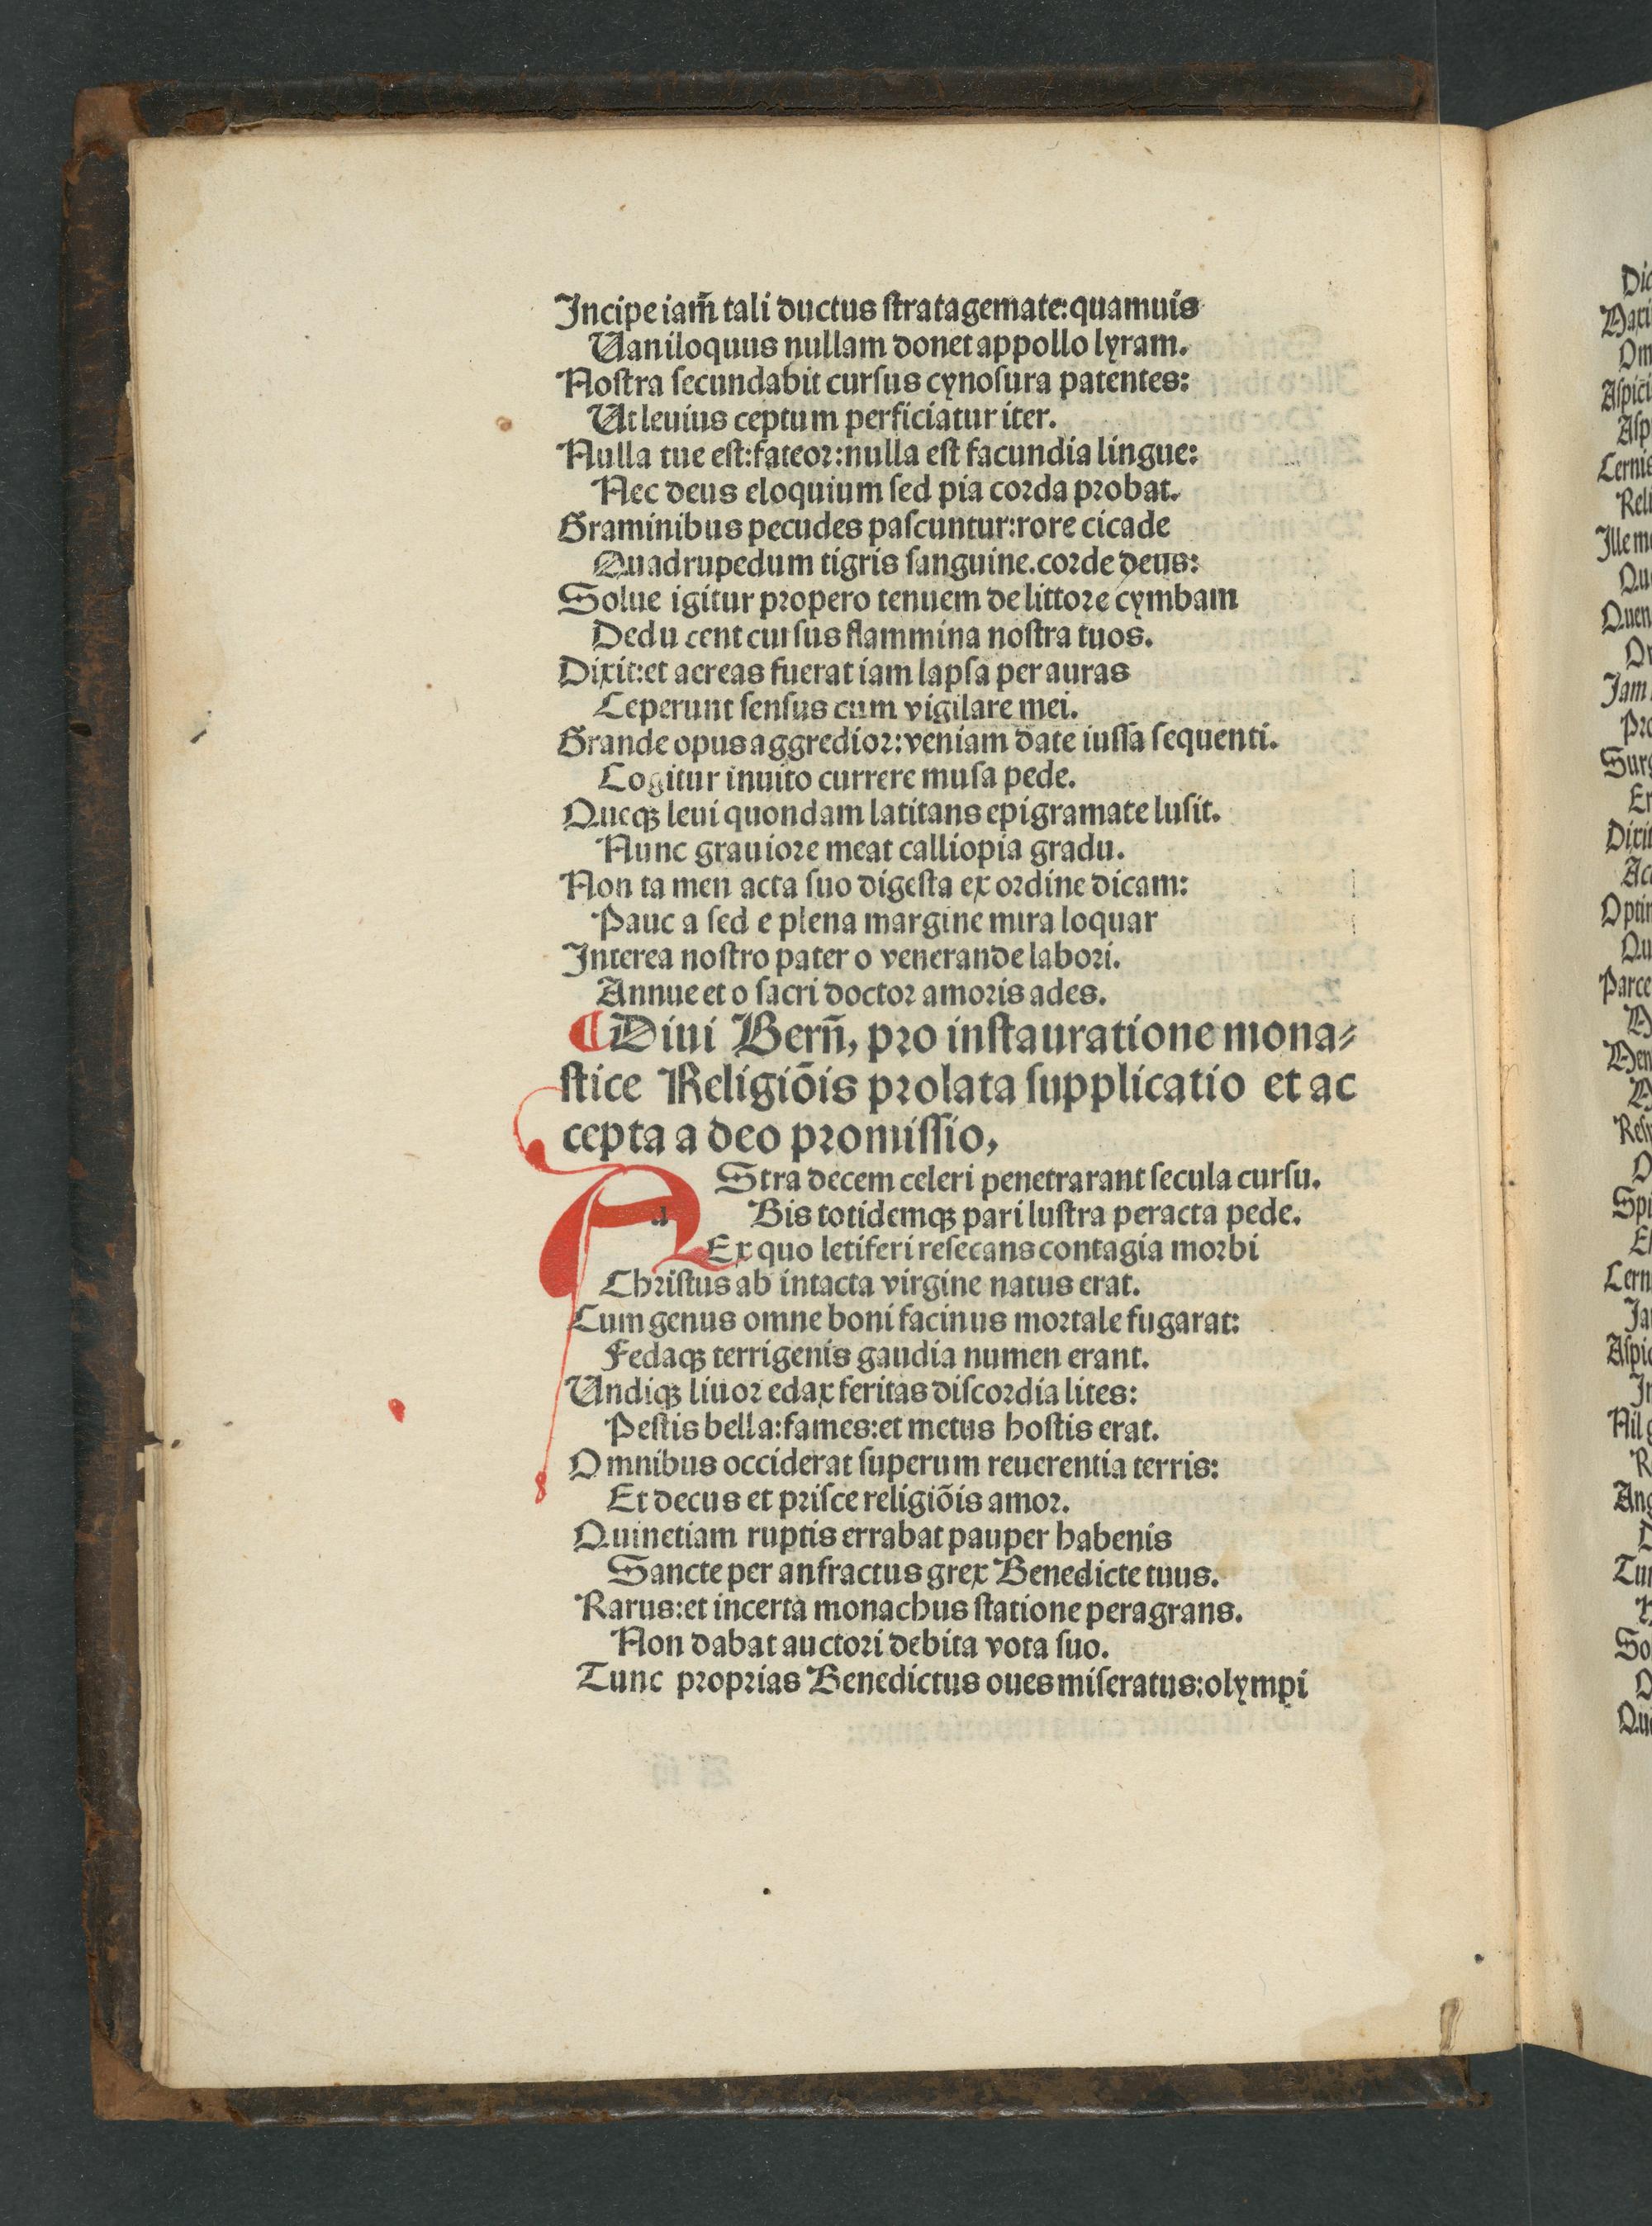 Incipe iam̃ tali ductus ſtratagemate:quamuis
Uaniloquus nullam donet appollo lyram.
Noſtra ſecundabit curſus cynoſura patentes:
Ut leuius ceptum perficiatur iter.
Nulla tue eſt:fateor:nulla eſt facundia lingue:
Nec deus eloquium ſed pia corda probat.
Graminibus pecudes paſcuntur:rore cicade
Quadrupedum tigris ſanguine.corde deus:
Solue igitur propero tenuem de littore cymbam
Dedu cent curſus flammina noſtra tuos.
Dixit:et aereas fuerat iam lapſa per auras
Ceperunt ſenſus cum vigilare mei.
Grande opus aggredior:veniam date iuſſa ſequenti.
Cogitur inuito currere muſa pede.
Queqꝫ leui quondam latitans epigramate luſit.
Nunc grauiore meat calliopia gradu.
Non ta men acta ſuo digeſta ex ordine dicam:
Pauc a ſed e plena margine mira loquar
Interea noſtro pater o venerande labori.
Annue et o ſacri doctor amoris ades.
¶ Diui Bern̄, pro inſtauratione mona⸗
ſtice Religiōis prolata ſupplicatio et ac
cepta a deo promiſſio,
AStra decem celeri penetrarant ſecula curſu.
Bis totidemqꝫ pari luſtra peracta pede.
Ex quo letiferi reſecans contagia morbi
Chriſtus ab intacta virgine natus erat.
Cum genus omne boni facinus mortale fugarat:
Fedaqꝫ terrigenis gaudia numen erant.
Undiqꝫ liuor edax feritas diſcordia lites:
Peſtis bella:fames:et metus hoſtis erat.
Omnibus occiderat ſuperum reuerentia terris:
Et decus et priſce religiōis amor.
Quinetiam ruptis errabat pauper habenis
Sancte per anfractus grex Benedicte tuus.
Rarus:et incerta monachus ſtatione peragrans.
Non dabat auctori debita vota ſuo.
Tunc proprias Benedictus oues miſeratus:olympi